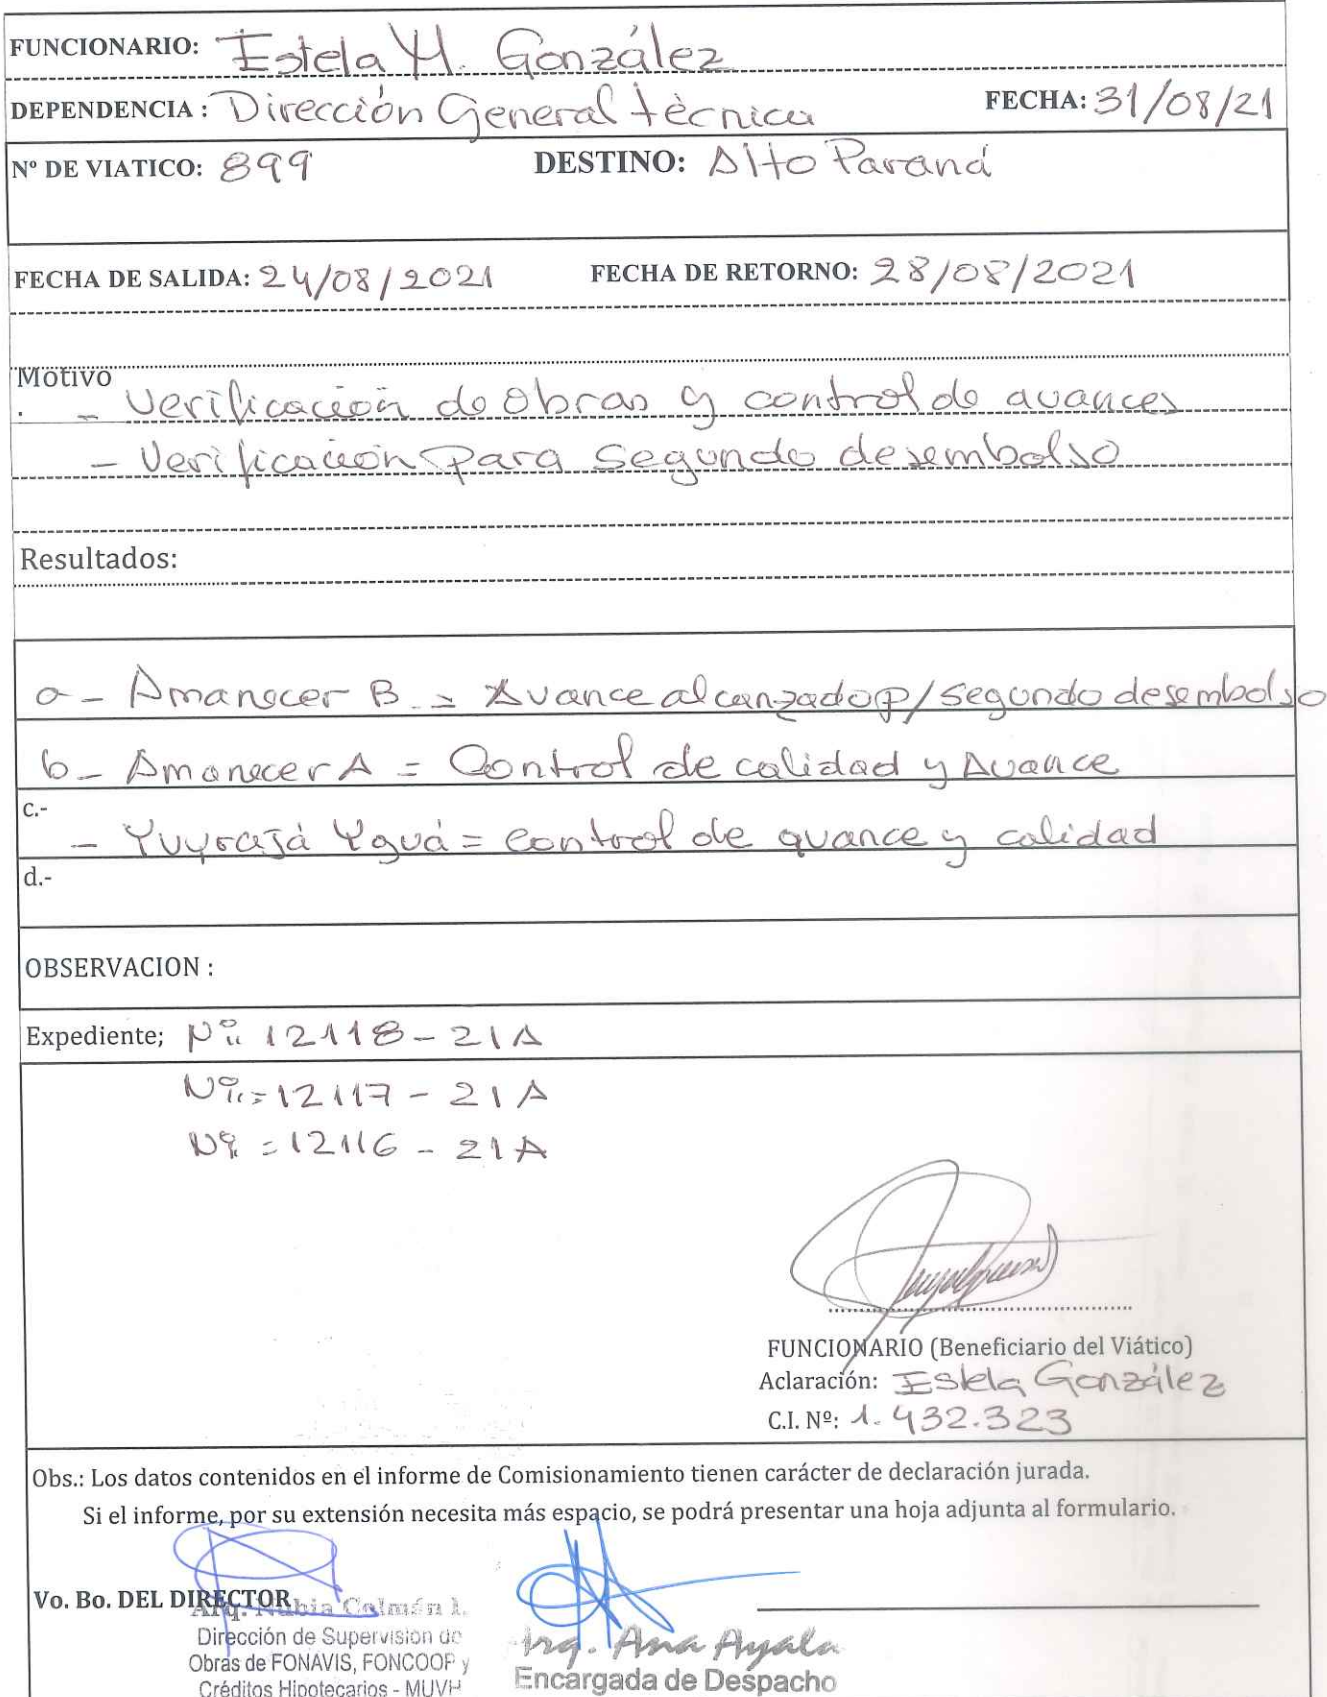 FUNCIONARIO: Estela M. González
DEPENDENCIA : Dirección General tècnica FECHA: 31/08/21
Nº DE VIATICO: 899 DESTINO: Alto Paraná
FECHA DE SALIDA: 24/08/2021 FECHA DE RETORNO: 28/08/2021
Motivo
. - Verificación de obras y control de avances
- Verificación para segundo desembolso
Resultados:
a - Amanecer B. = Avance alcanzado p/ segundo desembolso
b - Amanecer A = Control de calidad y Avance
c.-
- Yvyrajá Yguá = control de avance y calidad
d.-
OBSERVACION :
Expediente; Nº: 12118 - 21A
Nº: = 12117 - 21A
Nº = 12116 - 21A
FUNCIONARIO (Beneficiario del Viático)
Aclaración: Estela González
C.I. Nº: 1.432.323
Obs.: Los datos contenidos en el informe de Comisionamiento tienen carácter de declaración jurada.
Si el informe, por su extensión necesita más espacio, se podrá presentar una hoja adjunta al formulario.
Vo. Bo. DEL DIRECTOR
Arq. Nubia Colmán I.
Dirección de Supervisión de
Obras de FONAVIS, FONCOOP y
Créditos Hipotecarios - MUVH
Arq. Ana Ayala
Encargada de Despacho